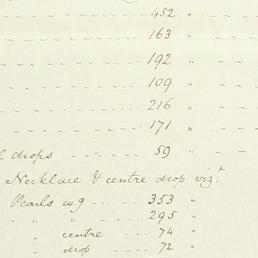 - - - - - 452 "
- - - - - 163 "
- - - - - 192 "
- - - - - 109 "
- - - - - 216 "
- - - - - 171 "
drops - - - - 59 "
Necklace & centre drop viz.t
Pearls wg - - - - 353 "
" " - - - - 295 "
" centre - - - - 74 "
" drop - - - - 72 "